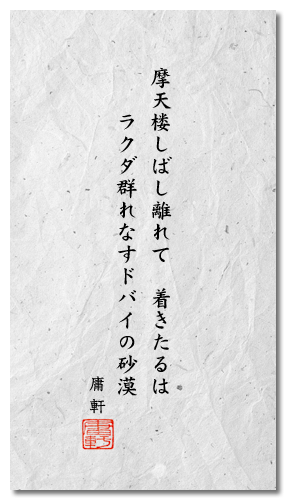 摩天楼しばし離れて　着きたるは
ラクダ群れなすドバイの砂漠
庸軒